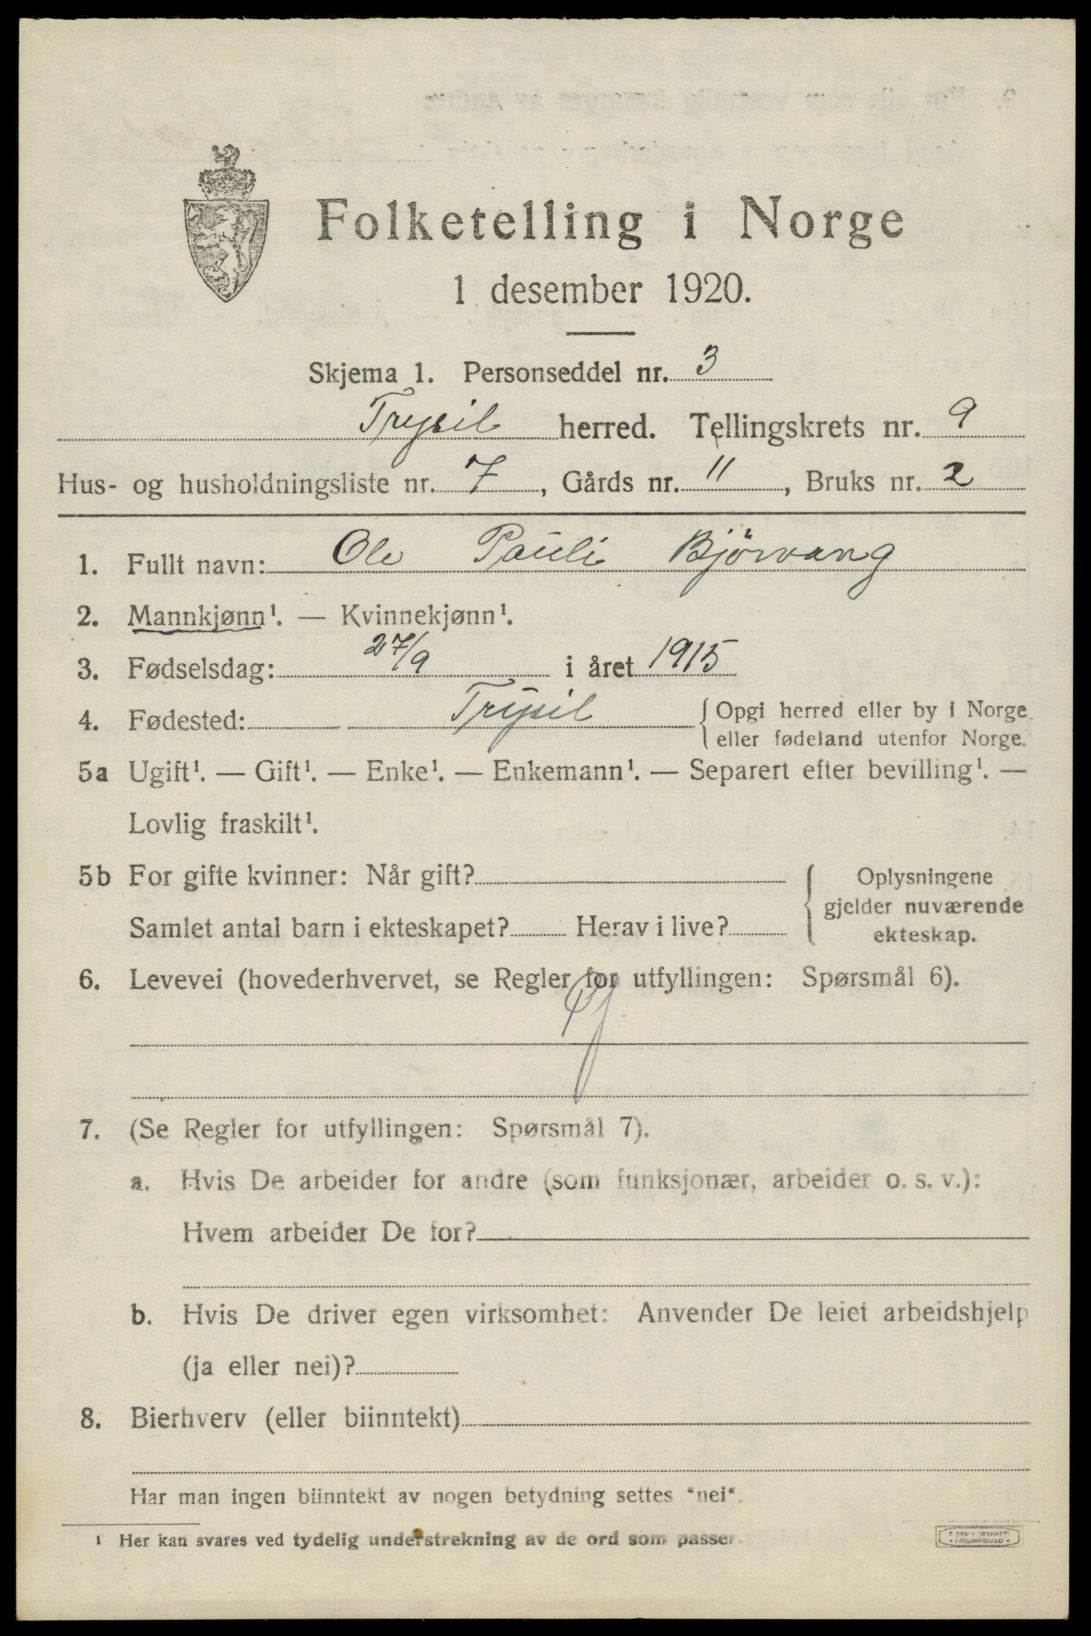 Folketelling i Norge
1 desember 1920.
Skjema 1. Personseddel nr. 3
Trysil herred. Tellingskrets nr. 9
Hus- og husholdningsliste nr. 7, Gårds nr. 11, Bruks nr. 2
1. Fullt navn: Ole Pauli Bjørvang
2. Mannkjønn¹. — Kvinnekjønn¹.
3. Fødselsdag: 27/9 i året 1915
4. Fødested: Trysil { Opgi herred eller by i Norge
eller fødeland utenfor Norge.
5a Ugift¹. — Gift¹. — Enke¹. — Enkemann¹. — Separert efter bevilling¹. —
Lovlig fraskilt¹.
5b For gifte kvinner: Når gift? { Oplysningene
gjelder nuværende
Samlet antal barn i ekteskapet? Herav i live? ekteskap.
6. Levevei (hovederhvervet, se Regler for utfyllingen: Spørsmål 6).
7. (Se Regler for utfyllingen: Spørsmål 7).
a. Hvis De arbeider for andre (som funksjonær, arbeider o. s. v.):
Hvem arbeider De for?
b. Hvis De driver egen virksomhet: Anvender De leiet arbeidshjelp
(ja eller nei)?
8. Bierhverv (eller biinntekt)
Har man ingen biinntekt av nogen betydning settes "nei".
¹ Her kan svares ved tydelig understrekning av de ord som passer.